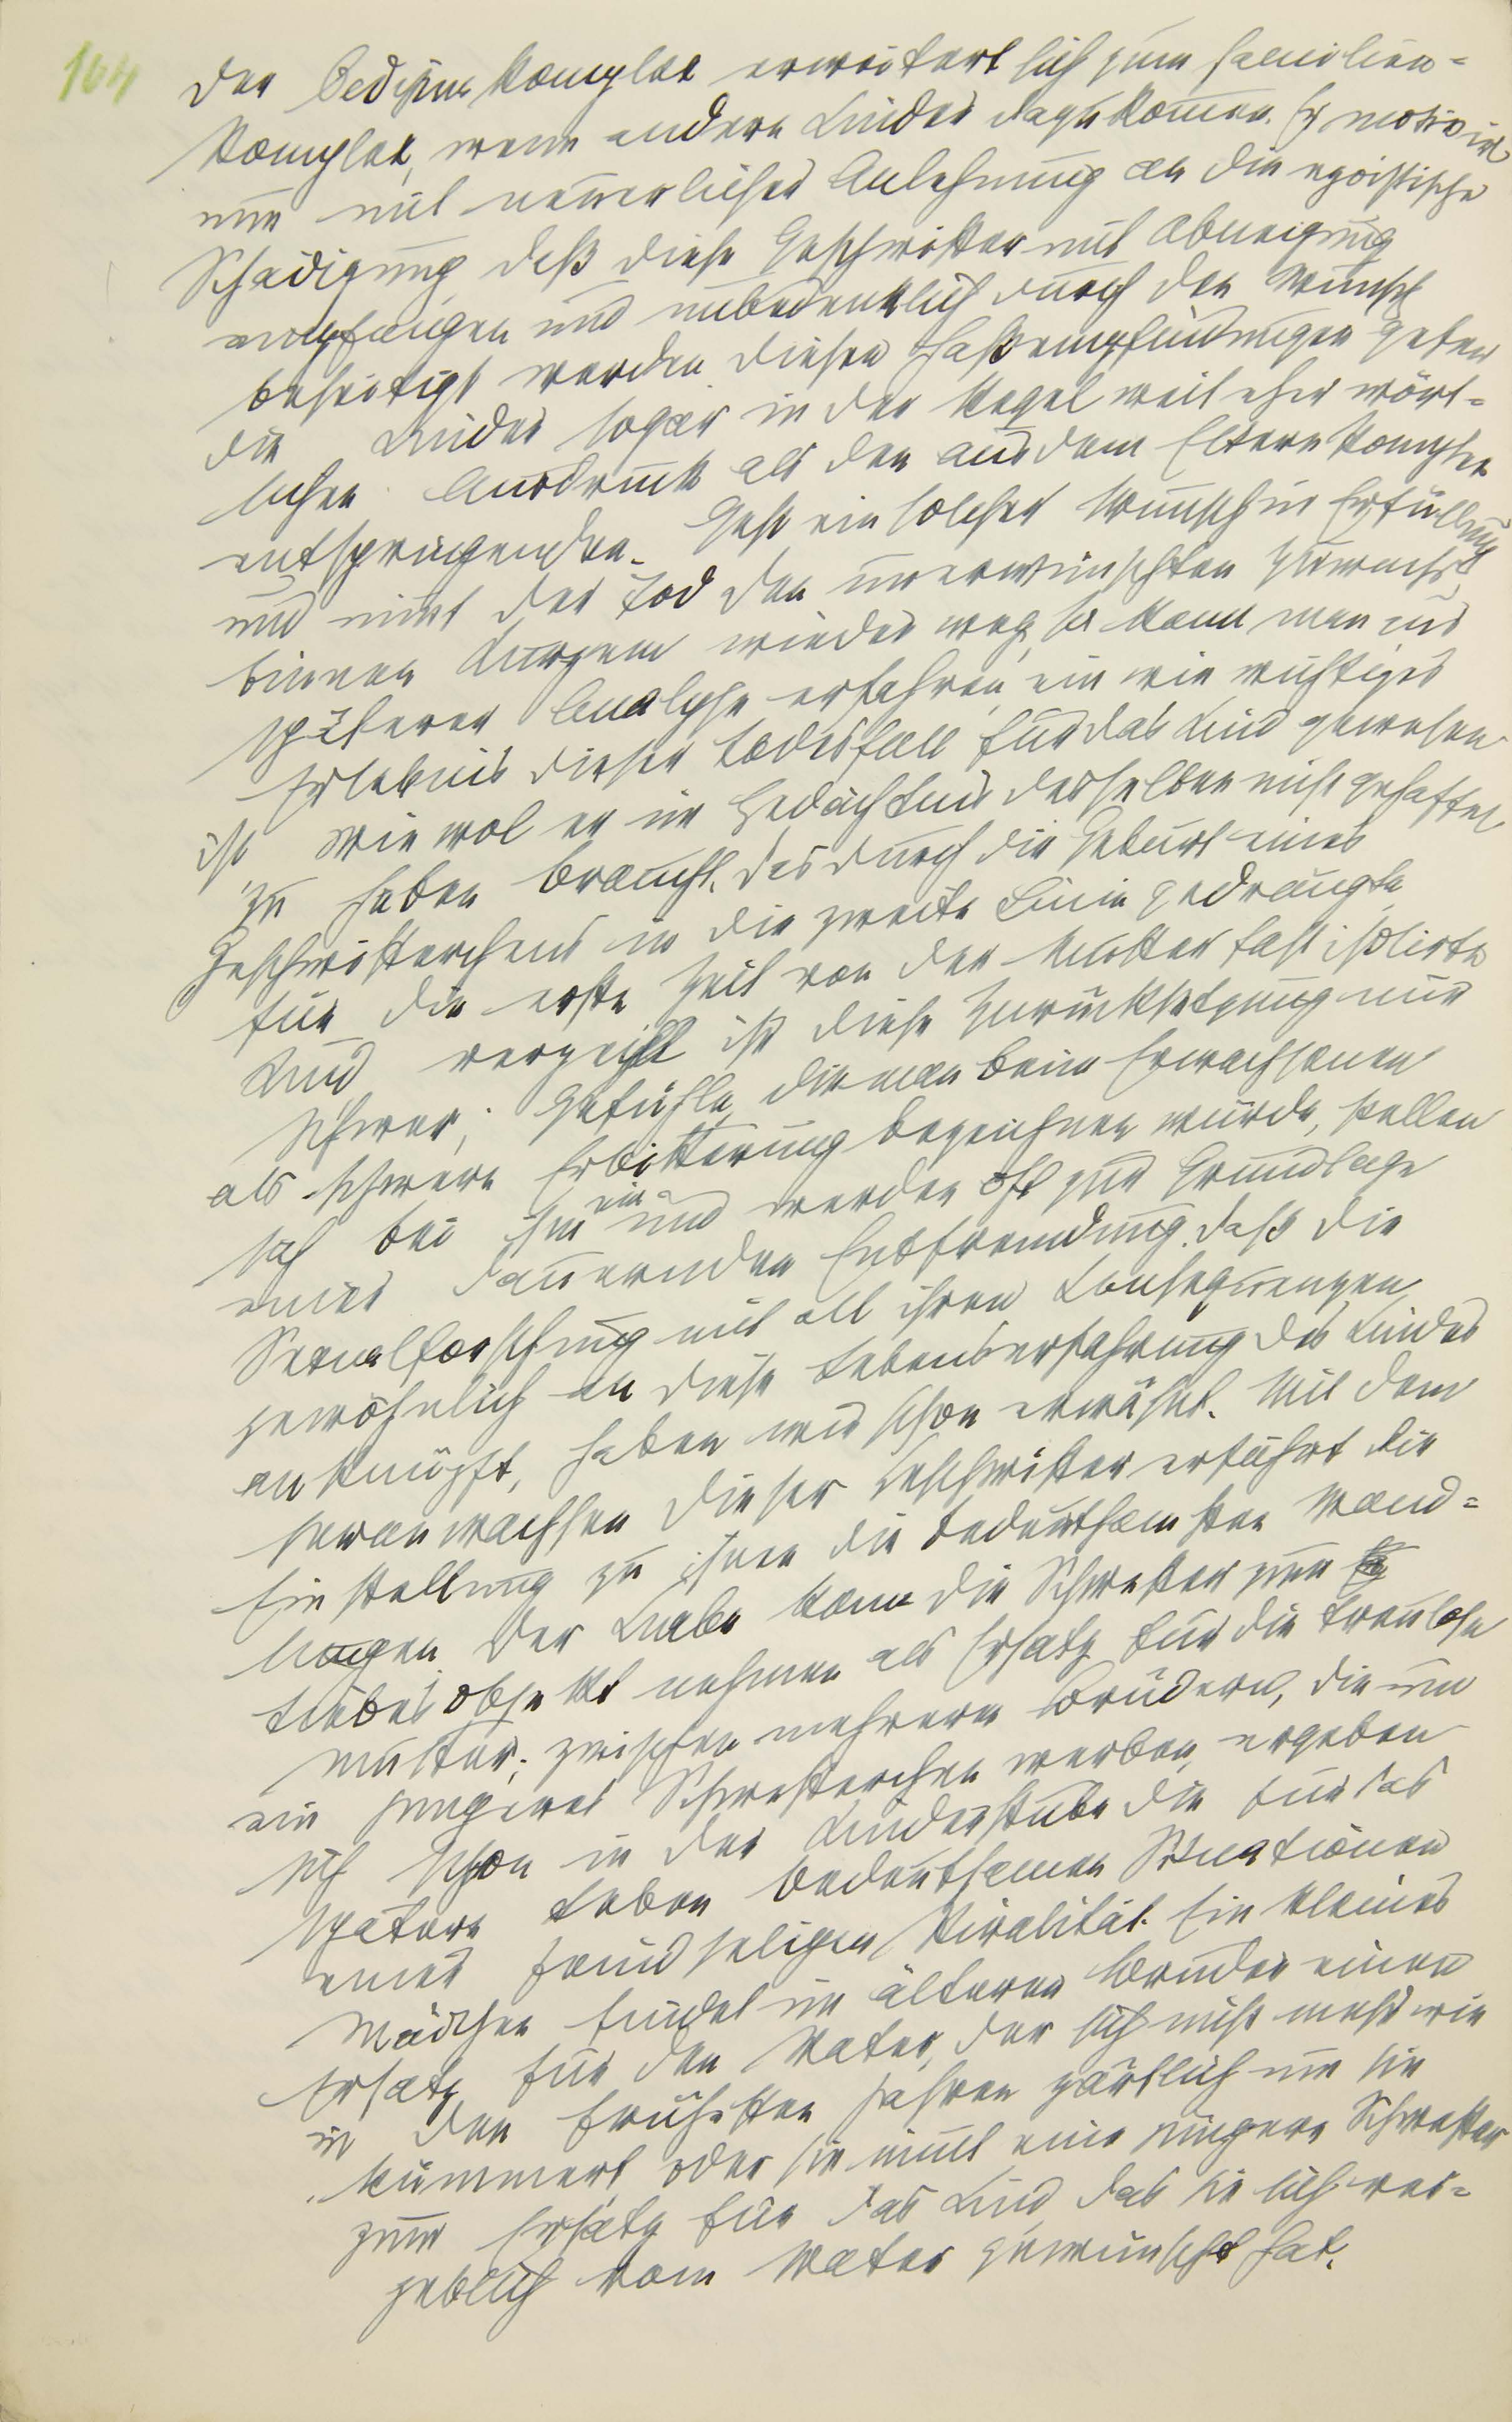 164
Der Oedipuskomplex erweitert sich zum Familien=
komplex, wenn andere Kinder dazukomen. Er motivirt
nun mit neuerlicher Anlehnung an die egoistische
Schädigung, daß diese Geschwister mit Abneigung
empfangen und unbedenklich durch den Wunsch
beseitigt werden. Diesen Haßempfindungen geben
die Kinder sogar in der Regel weit eher wört=
lichen Ausdruck als den aus dem Elternkomplex
entspringenden. Geht ein solcher Wunsch in Erfüllung
und nimt der Tod den unerwünschten Zuwachs
binnen Kurzem wieder weg, so kann man aus
späterer Analyse erfahren, ein wie wichtiges
Erlebnis dieser Todesfall für das Kind gewesen
ist, wiewol er im Gedächtnis desselben nicht gehaftet
zu haben braucht. Das durch die Geburt eines
Geschwisterchens in die zweite Linie gedrängte,
für die erste Zeit von der Mutter fast isolirte
Kind vergißt ihr diese Zurücksetzung nur
schwer; Gefühle, die man beim Erwachsenen
als schwere Erbitterung bezeichnen würde, stellen
sich bei ihm ein und werden oft zur Grundlage
einer dauernden Entfremdung. Daß die
Sexualforschung mit all ihren Konsequenzen
gewöhnlich an diese Lebenserfahrung des Kindes
anknüpft, haben wir schon erwähnt. Mit dem
Heranwachsen dieser Geschwister erfährt die
Einstellung zu ihnen die bedeutsamsten Wand=
lungen. Der Knabe kann die Schwester zum
Liebesobjekt nehmen als Ersatz für die treulose
Mutter; zwischen mehreren Brüdern, die um
ein jüngeres Schwesterchen werben, ergeben
sich schon in der Kinderstube die für das
spätere Leben bedeutsamen Situationen
einer feindseligen Rivalität. Ein kleines
Mädchen findet im älteren Bruder einen
Ersatz für den Vater, der sich nicht mehr wie
in den frühesten Jahren zärtlich um sie
kümmert, oder sie nimt eine jüngere Schwester
zum Ersatz für das Kind, das sie sich ver=
geblich vom Vater gewünscht hat.